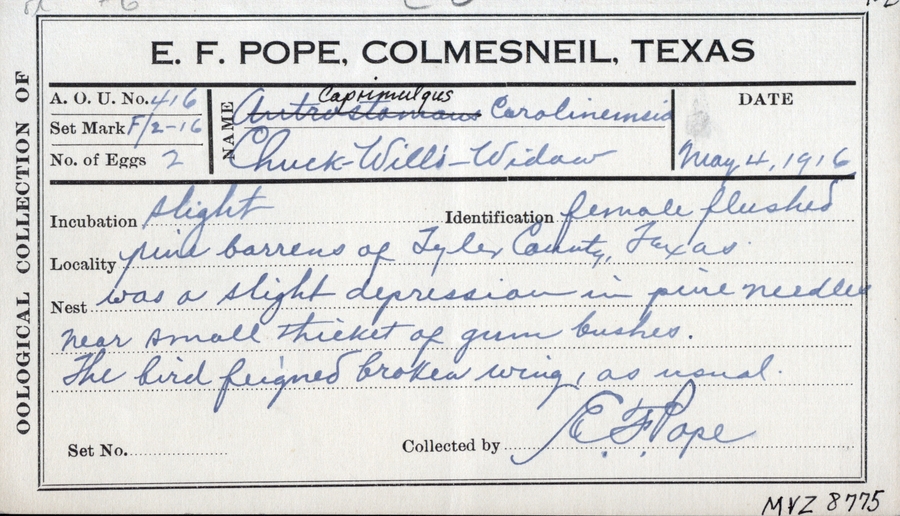 E. F. POPE, COLMESNEIL, TEXAS
OOLOGICAL COLLECTION OF
A. O. U. No. 416
Set Mark F/2-16
No. of Eggs 2
NAME
Caprimulgus
Antrostomus Carolinensis
Chuck-Will's-Widow
DATE
May 4, 1916
Incubation slight Identification female flushed
Locality pine barrens of Tyler County, Texas.
Nest was a slight depression in pine needles
near small thicket of gum bushes.
The bird feigned broken wing, as usual.
Set No. Collected by E. F. Pope
MVZ 8775